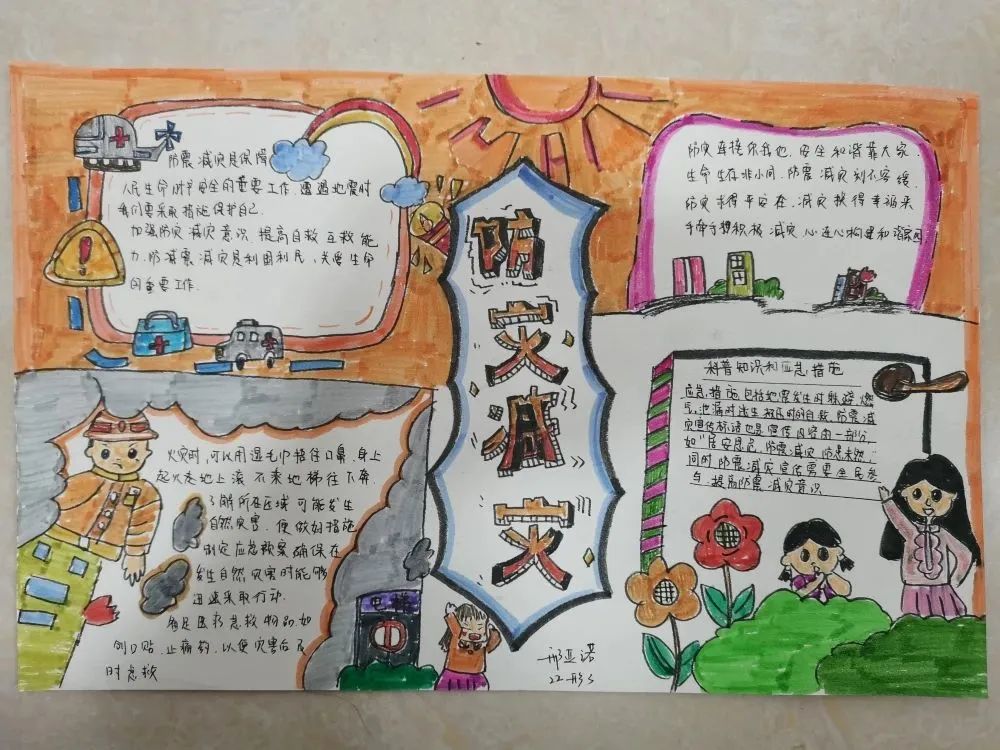 防震减灾是保障
人民生命财产安全的重要工作，遭遇地震时
我们要采取措施保护自己.
加强防灾减灾意识提高自救互救能
力.防减震减灾是利国利民，关爱生命
的重要工作.
防灾减灾
防灾连接你我他.安全和谐靠大家.
生命生存非小问.防震减灾刻不容缓.
防灾求得平安在.减灾换得幸福来
手牵手想积极减灾.心连心构建和谐家园
火灾时,可以用湿毛巾捂住口鼻.身上
起火走地上滚不乘电梯往下奔.
了解所在区域可能发生
自然灾害.便做好措施
制定应急预案确保在
发生自然灾害时能够
迅速采取行动.
备足医疗急救物品.如
创口贴.止痛药.以便灾害后及
时急救
电梯
科普知识和应急措施
应急措施包括地震发生时躲避燃
气泄漏时逃生被压时的自救防震减
灾宣传标语也是宣传内容的一部分,
如"居安思危,防震减灾防患未然."
同时防震减灾宣传需要全民参
与.提高防震减灾意识
邢亚诺